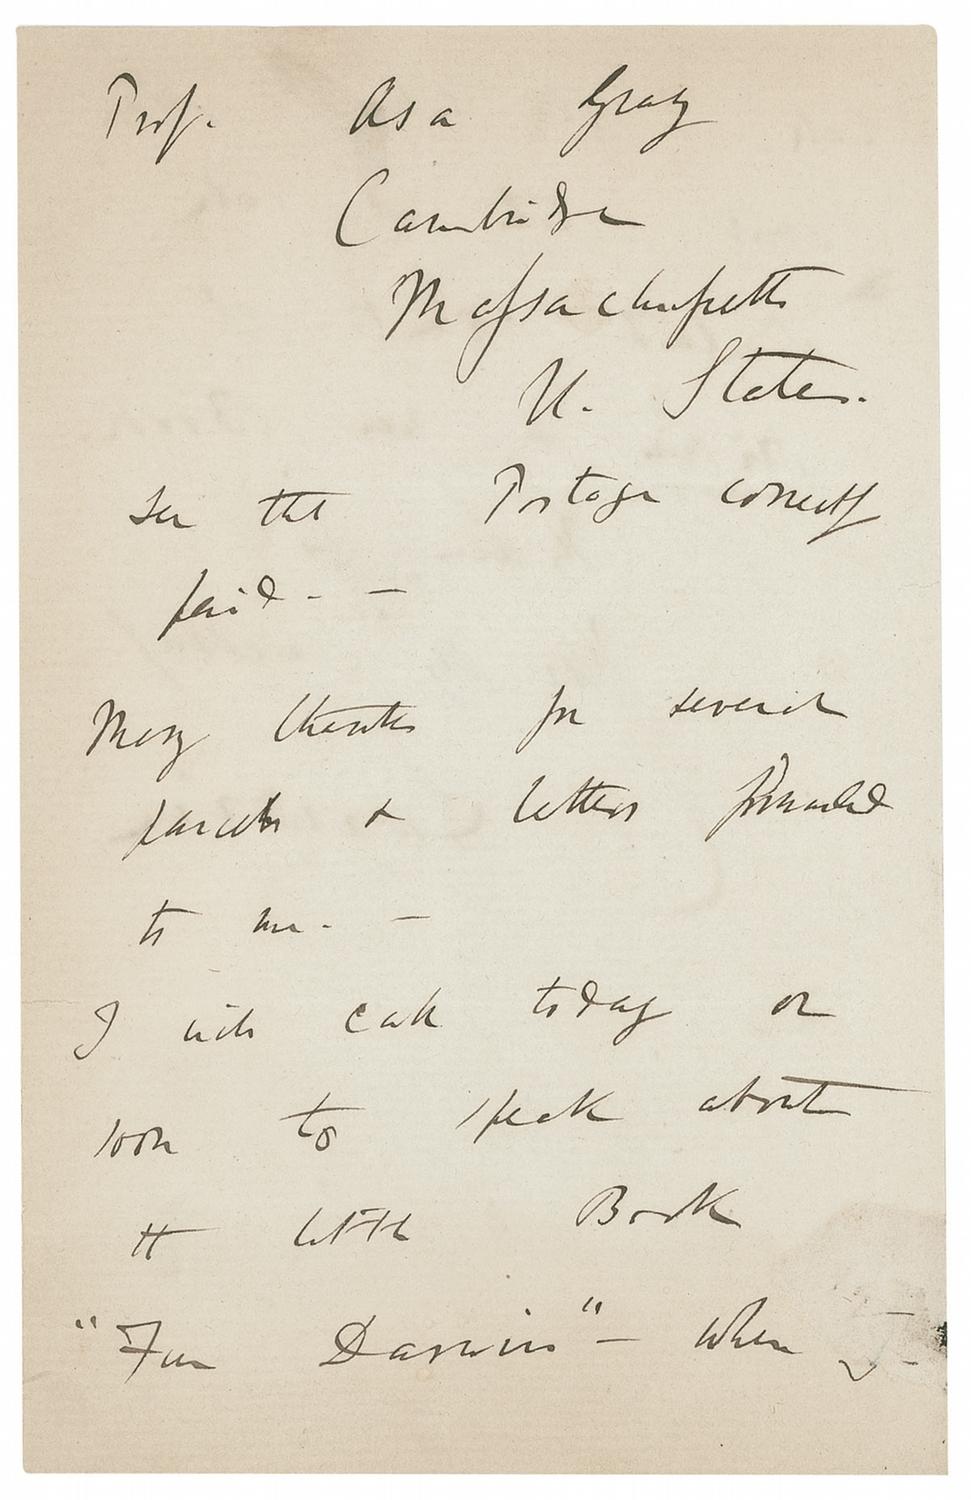 Prof. Asa Gray
Cambridge
Massachusetts
U. States.
See that Postage correctly
paid. —
Many thanks for several
parcels & letters forwarded
to me. —
I will call today or
soon to speak about
the little Book
"Für Darwin" — when I